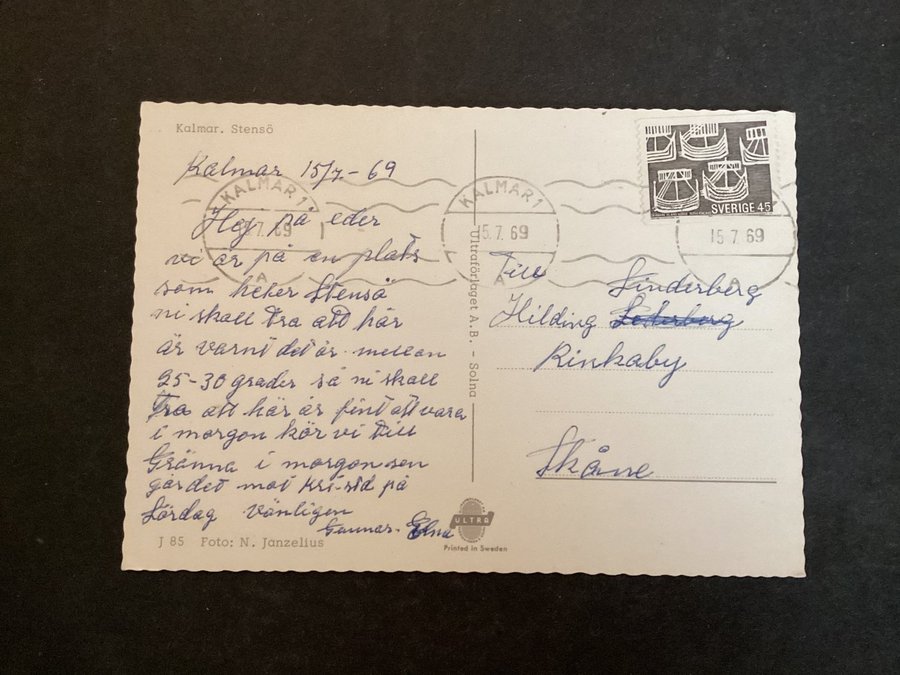 Kalmar. Stensö
Kalmar 15/7-69
Hej på eder
vi är på en plats
som heter Stensö
ni skall tra att här
är varnt det är mellan
25-30 grader så ni skall
tra att här är fint att vara
i morgon kör vi till
Gränna i morgon sen
går det mot Kri-std på
Lördag vänligen
Gunnar. Elna
J 85 Foto: N. Janzelius
Ultraförlaget A.B. - Solna
ULTRA
Printed in Sweden
KALMAR 1
15.7.69
A
KALMAR 1
15.7.69
A
15.7.69
A
SVERIGE 45
Till
Linderberg
Hilding
Rinkaby
Skåne